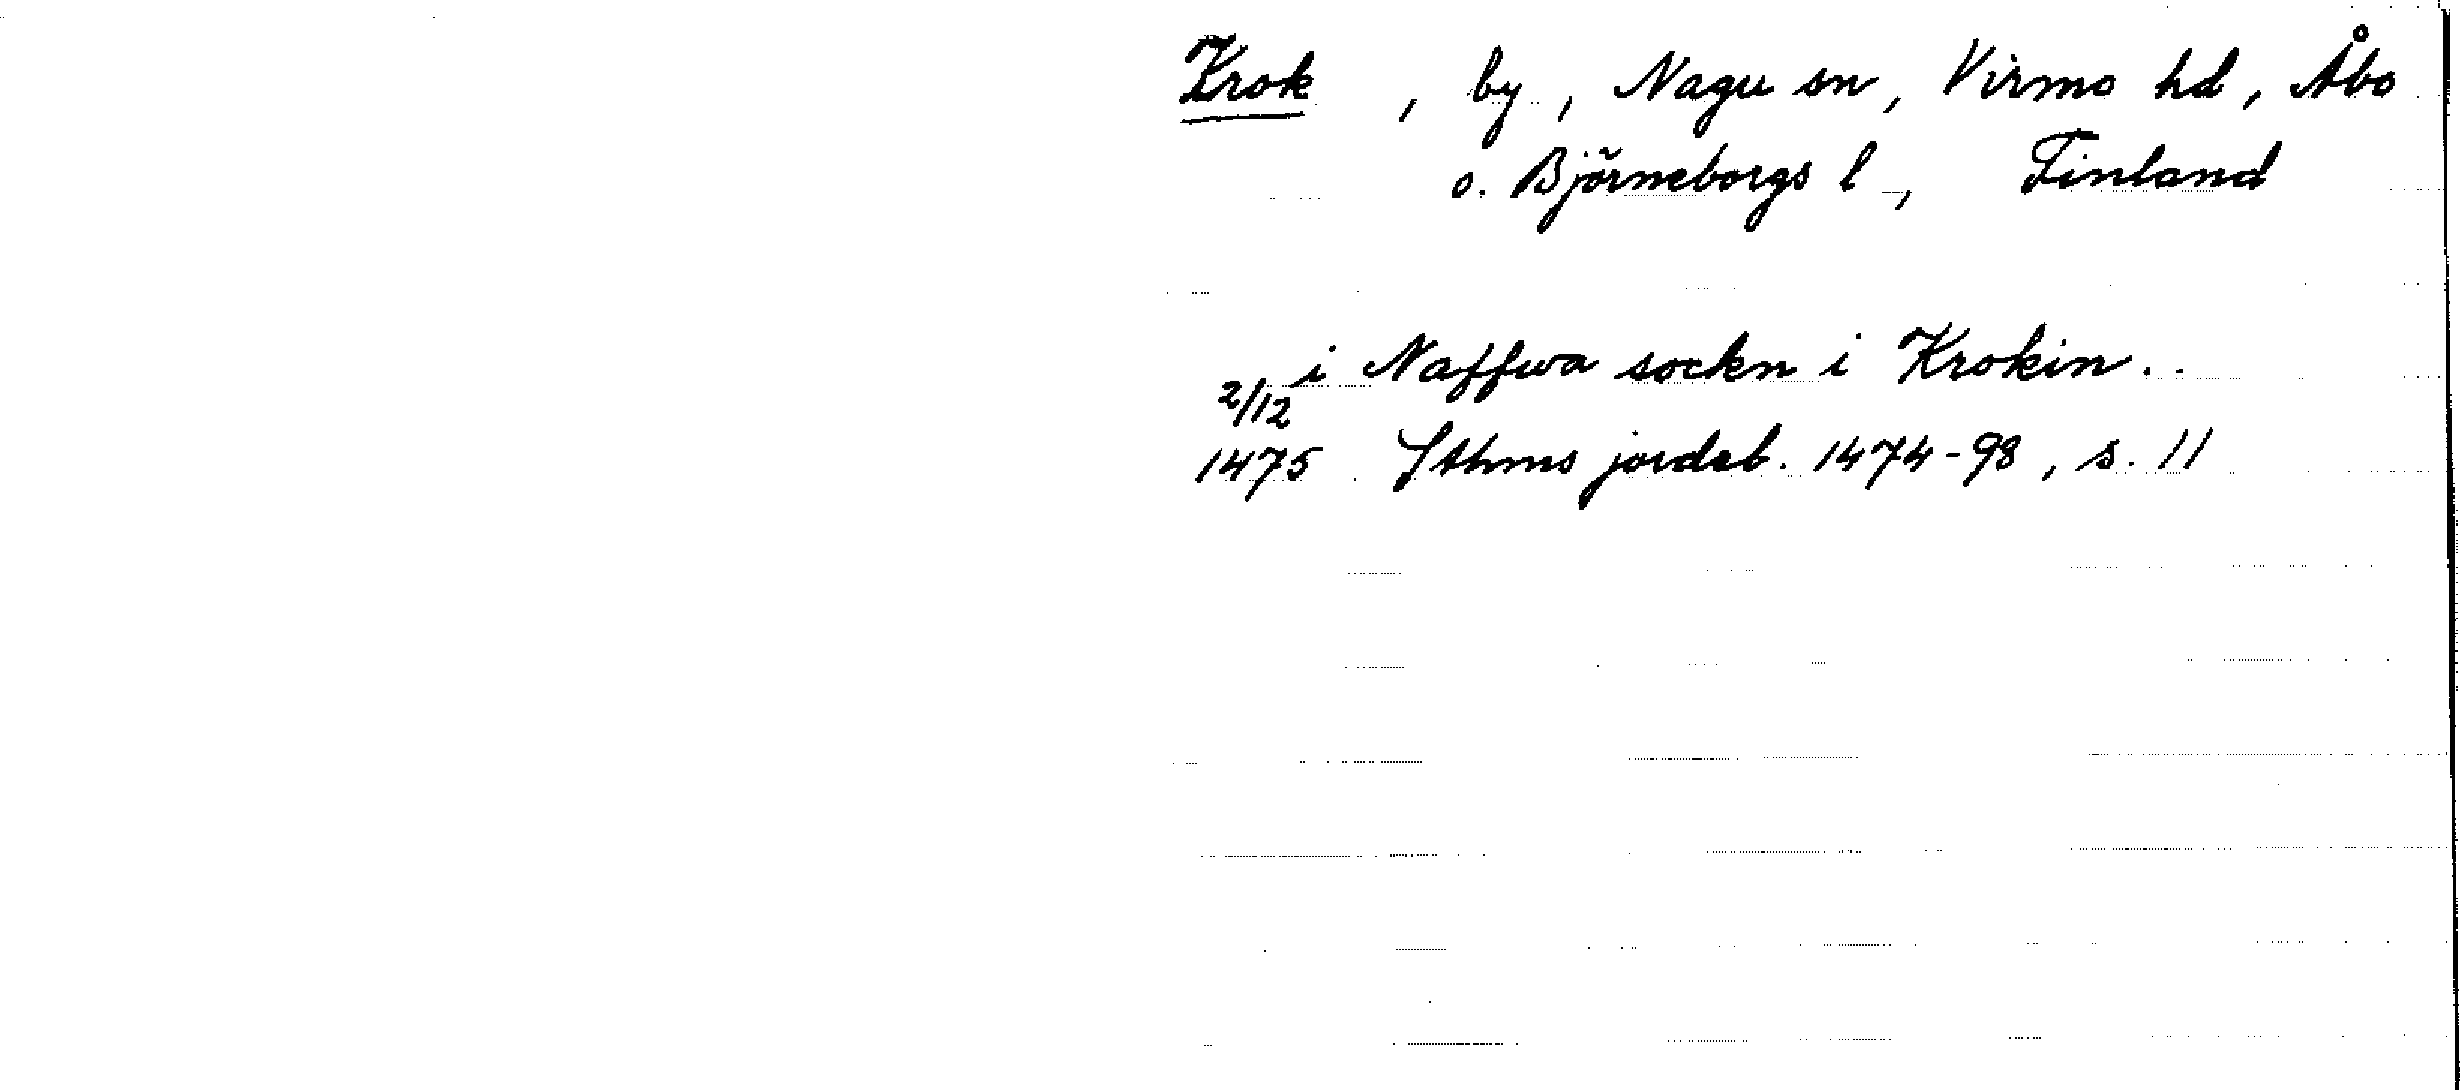 Krok, by, Nagu sn, Virmo hd, Åbo
o. Björneborgs l, Finland
i Naffwa sockn i Krokin..
2/12
1475 Sthms jordeb. 1474-98, s. 11